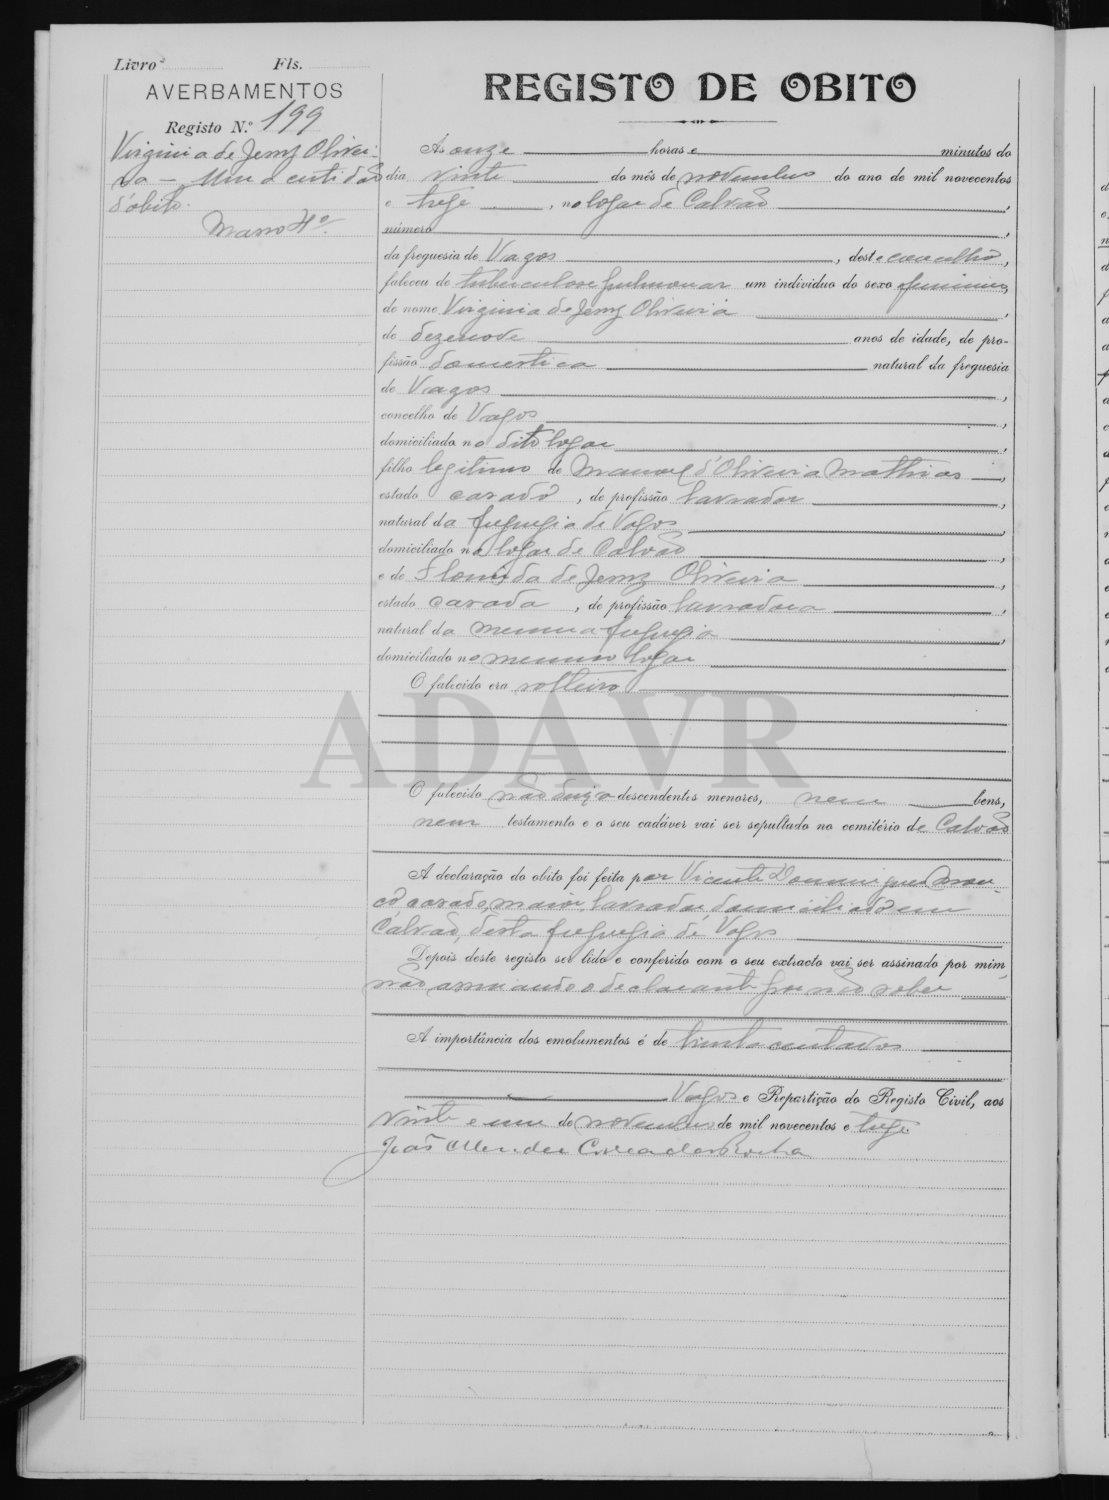 Livro Fls.
AVERBAMENTOS
Registo N.º 199
Virginia de Jesus Olivei-
ra — Uma certidão
d'obito.
Março 4º
REGISTO DE OBITO
Ás onze horas e minutos do
dia vinte do mês de novembro do ano de mil novecentos
e treze, no logar de Calvão,
número,
da freguesia de Vagos, deste concelho,
faleceu de tuberculose pulmonar um individuo do sexo feminino,
de nome Virginia de Jesus Oliveira,
de dezenove anos de idade, de pro-
fissão domestica natural da freguesia
de Vagos,
concelho de Vagos,
domiciliado no dito logar,
filho legitimo de Manuel d'Oliveira Mathias,
estado casado, de profissão lavrador,
natural da freguesia de Vagos,
domiciliado no logar de Calvão,
e de Florinda de Jesus Oliveira,
estado casada, de profissão lavradora,
natural da mesma freguesia,
domiciliado no mesmo logar
O falecido era solteiro
ADAVR
O falecido não deixa descendentes menores, nem bens,
nem testamento e o seu cadáver vai ser sepultado no cemitério de Calvão
A declaração do obito foi feita por Vicente Domingues
casado, maior, lavrador domiciliado em
Calvão, desta freguesia de Vagos
Depois deste registo ser lido e conferido com o seu extracto vai ser assinado por mim,
não assinando o declarante por não saber
A importância dos emolumentos é de trinta centavos
Vagos e Repartição do Registo Civil, aos
vinte e um de novembro de mil novecentos e treze.
João Mendes Correia da Rocha